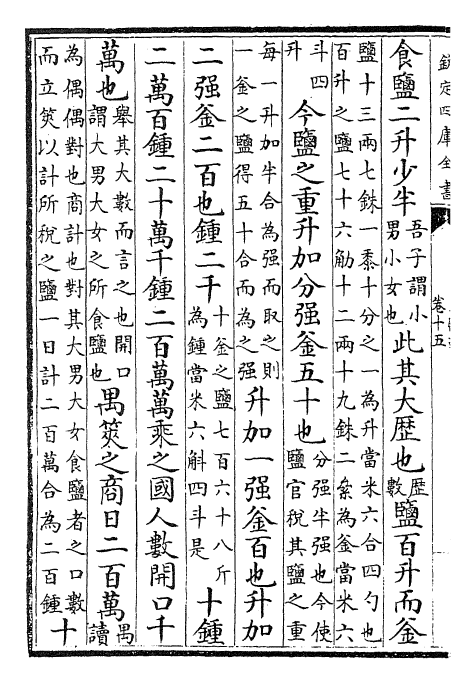 欽定四庫全書
卷十五
食鹽二升少半
吾子謂小
男小女也
此其大歷也
歷
數
鹽百升而釜
鹽十三兩七銖一黍十分之一為升當米六合四勺也
百升之鹽七十六觔十二兩十九銖二絫為釜當米六
斗四
升
今鹽之重升加分强釜五十也
分强半强也今使
鹽官稅其鹽之重
每一升加半合為强而取之則
一釜之鹽得五十合而為之强
升加一强釜百也升加
二强釜二百也鍾二千
十釜之鹽七百六十八斤
為鍾當米六斛四斗是
十鍾
二萬百鍾二十萬千鍾二百萬萬乘之國人數開口千
萬也
舉其大數而言之也開口
謂大男大女之所食鹽也
禺筴之商日二百萬
禺
讀
為偶偶對也商計也對其大男大女食鹽者之口數
而立筴以計所稅之鹽一日計二百萬合為二百鍾
十